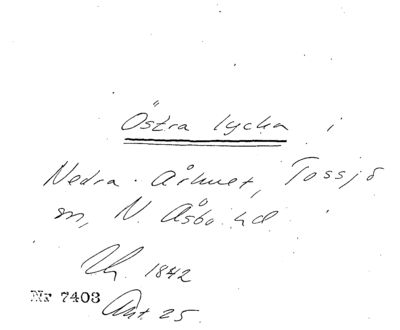 Östra lycka i
Nedra Århuset, Tossjö
sn, N. Åsbo hd
Uh. 1842
Nr 7403
Ant. 25.